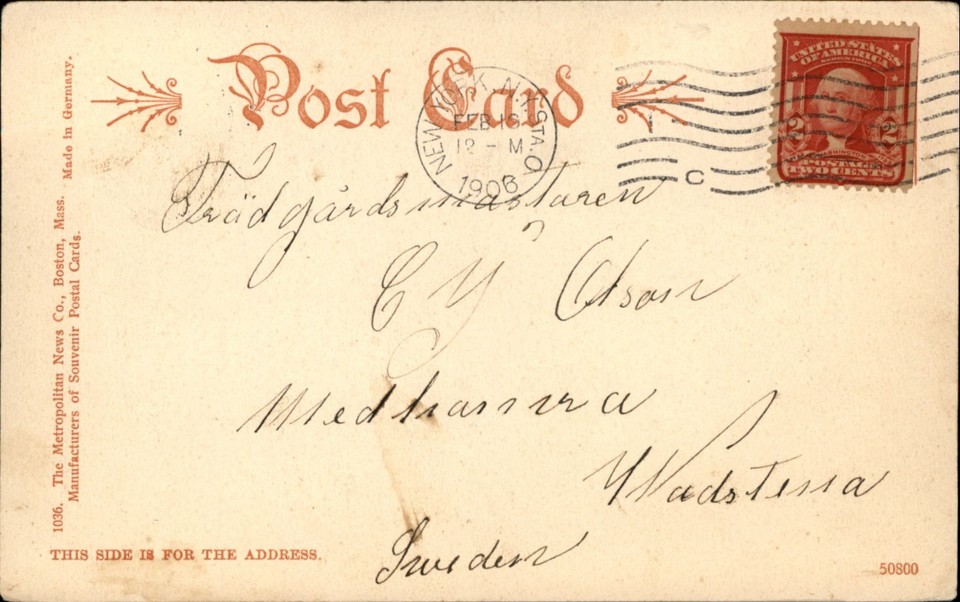 Post Card
NEW YORK, N.Y. STA. O
FEB 19
12 - M
1906
C
UNITED STATES
OF AMERICA
2 2
POSTAGE
TWO CENTS
Trädgårdsmästaren
C Y Olson
Medhamra
Wadstena
Sweden
1036. The Metropolitan News Co., Boston, Mass. Made in Germany.
Manufacturers of Souvenir Postal Cards.
THIS SIDE IS FOR THE ADDRESS.
50800